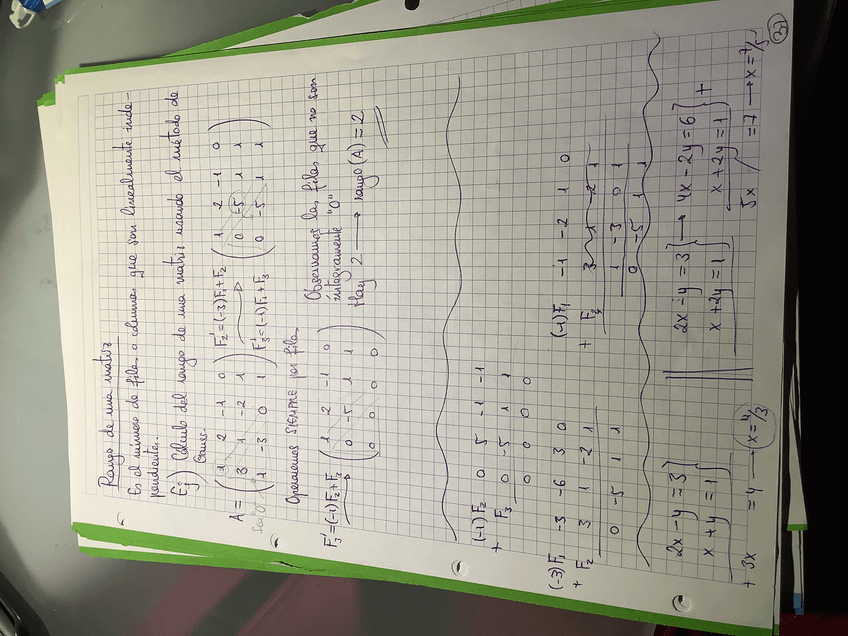 Rango de una matriz
Es el número de filas o columnas que son linealmente inde-
pendientes.
Ej) Cálculo del rango de una matriz usando el método de
Gauss.
A = ( 1 2 -1 0
3 1 -2 1
1 -3 0 1 )
F₂'=(-3)F₁+F₂
F₃'=(-1)F₁+F₃
( 1 2 -1 0
0 -5 1 1
0 -5 1 1 )
Operamos SIEMPRE por filas
F₃'=(-1)F₂+F₃
( 1 2 -1 0
0 -5 1 1
0 0 0 0 )
Observamos las filas que no son
íntegramente "0"
Hay 2 → rango(A)=2
(-1)F₂ 0 5 -1 -1
+ F₃ 0 -5 1 1
0 0 0 0
(-3)F₁ -3 -6 3 0
+ F₂ 3 1 -2 1
0 -5 1 1
(-1)F₁ -1 -2 1 0
+ F₃ 3 1 -2 1
1 -3 0 1
0 -5 1 1
2x-y=3}
x+y=1}
+ 3x =4 → x=4/3
2x-y=3} → 4x-2y=6} +
x+2y=1} x+2y=1}
5x =7 → x=7/5